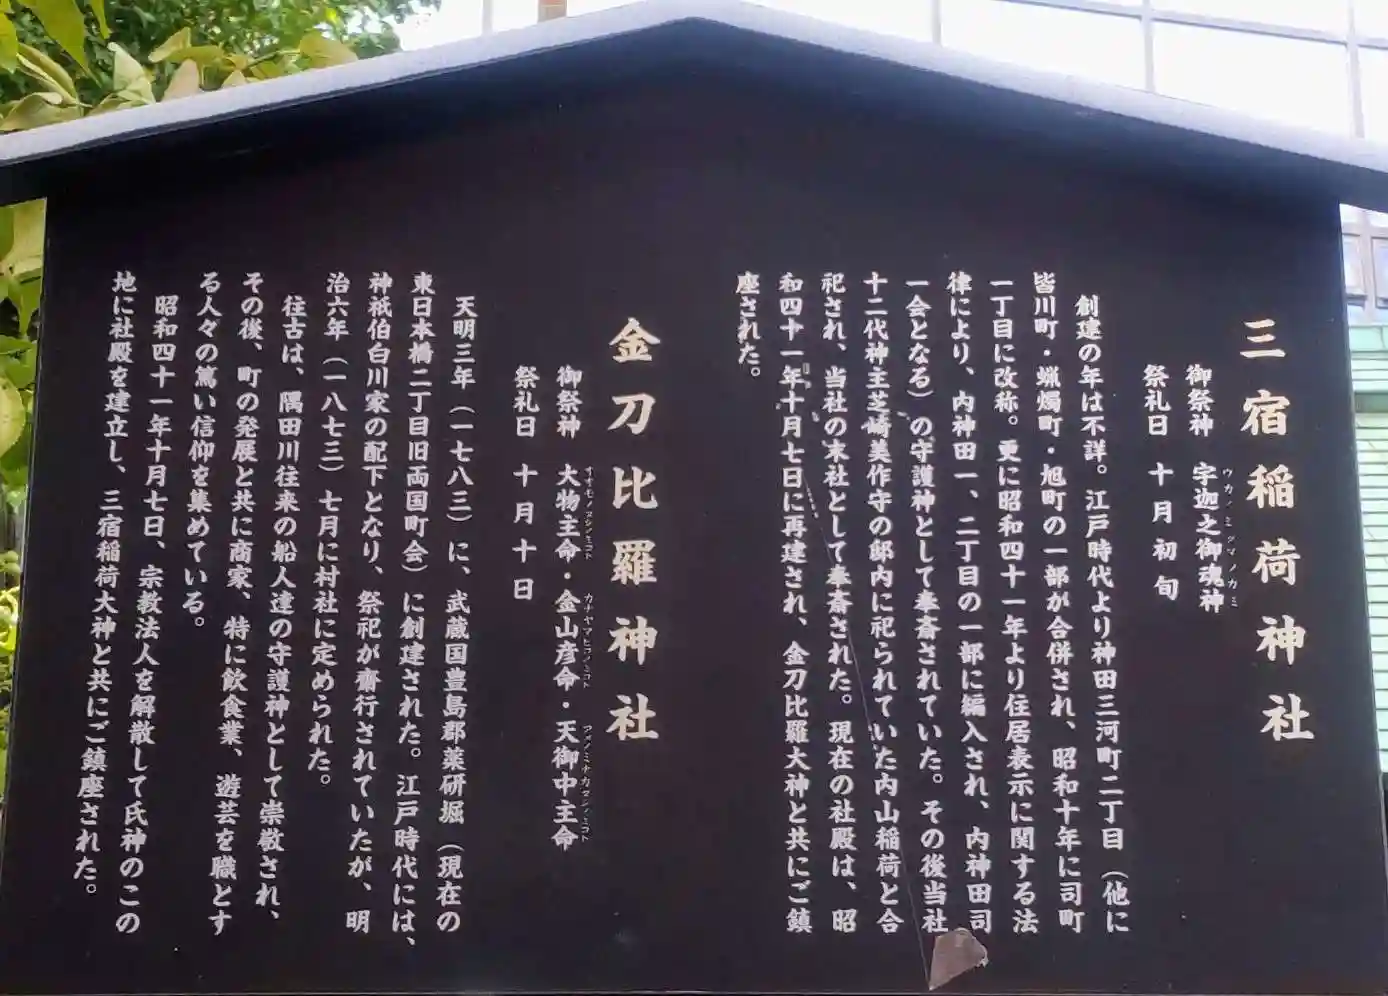 三宿稲荷神社
御祭神 宇迦之御魂神
ウカノミタマノカミ
祭礼日 十月初旬
創建の年は不詳。江戸時代より神田三河町二丁目（他に
皆川町・蝋燭町・旭町の一部が合併され、昭和十年に司町
一丁目に改称。更に昭和四十一年より住居表示に関する法
律により、内神田一、二丁目の一部に編入され、内神田司
一会となる）の守護神として奉斎されていた。その後当社
十二代神主芝崎美作守の邸内に祀られていた内山稲荷と合
祀され、当社の末社として奉斎された。現在の社殿は、昭
和四十一年十月七日に再建され、金刀比羅大神と共にご鎮
座された。
金刀比羅神社
御祭神 大物主命・金山彦命・天御中主命
オオモノヌシノミコト カナヤマヒコノミコト アメノミナカヌシノミコト
祭礼日 十月十日
天明三年（一七八三）に、武蔵国豊島郡薬研堀（現在の
東日本橋二丁目旧両国町会）に創建された。江戸時代には、
神祇伯白川家の配下となり、祭祀が齋行されていたが、明
治六年（一八七三）七月に村社に定められた。
往古は、隅田川往来の船人達の守護神として崇敬され、
その後、町の発展と共に商家、特に飲食業、遊芸を職とす
る人々の篤い信仰を集めている。
昭和四十一年十月七日、宗教法人を解散して氏神のこの
地に社殿を建立し、三宿稲荷大神と共にご鎮座された。